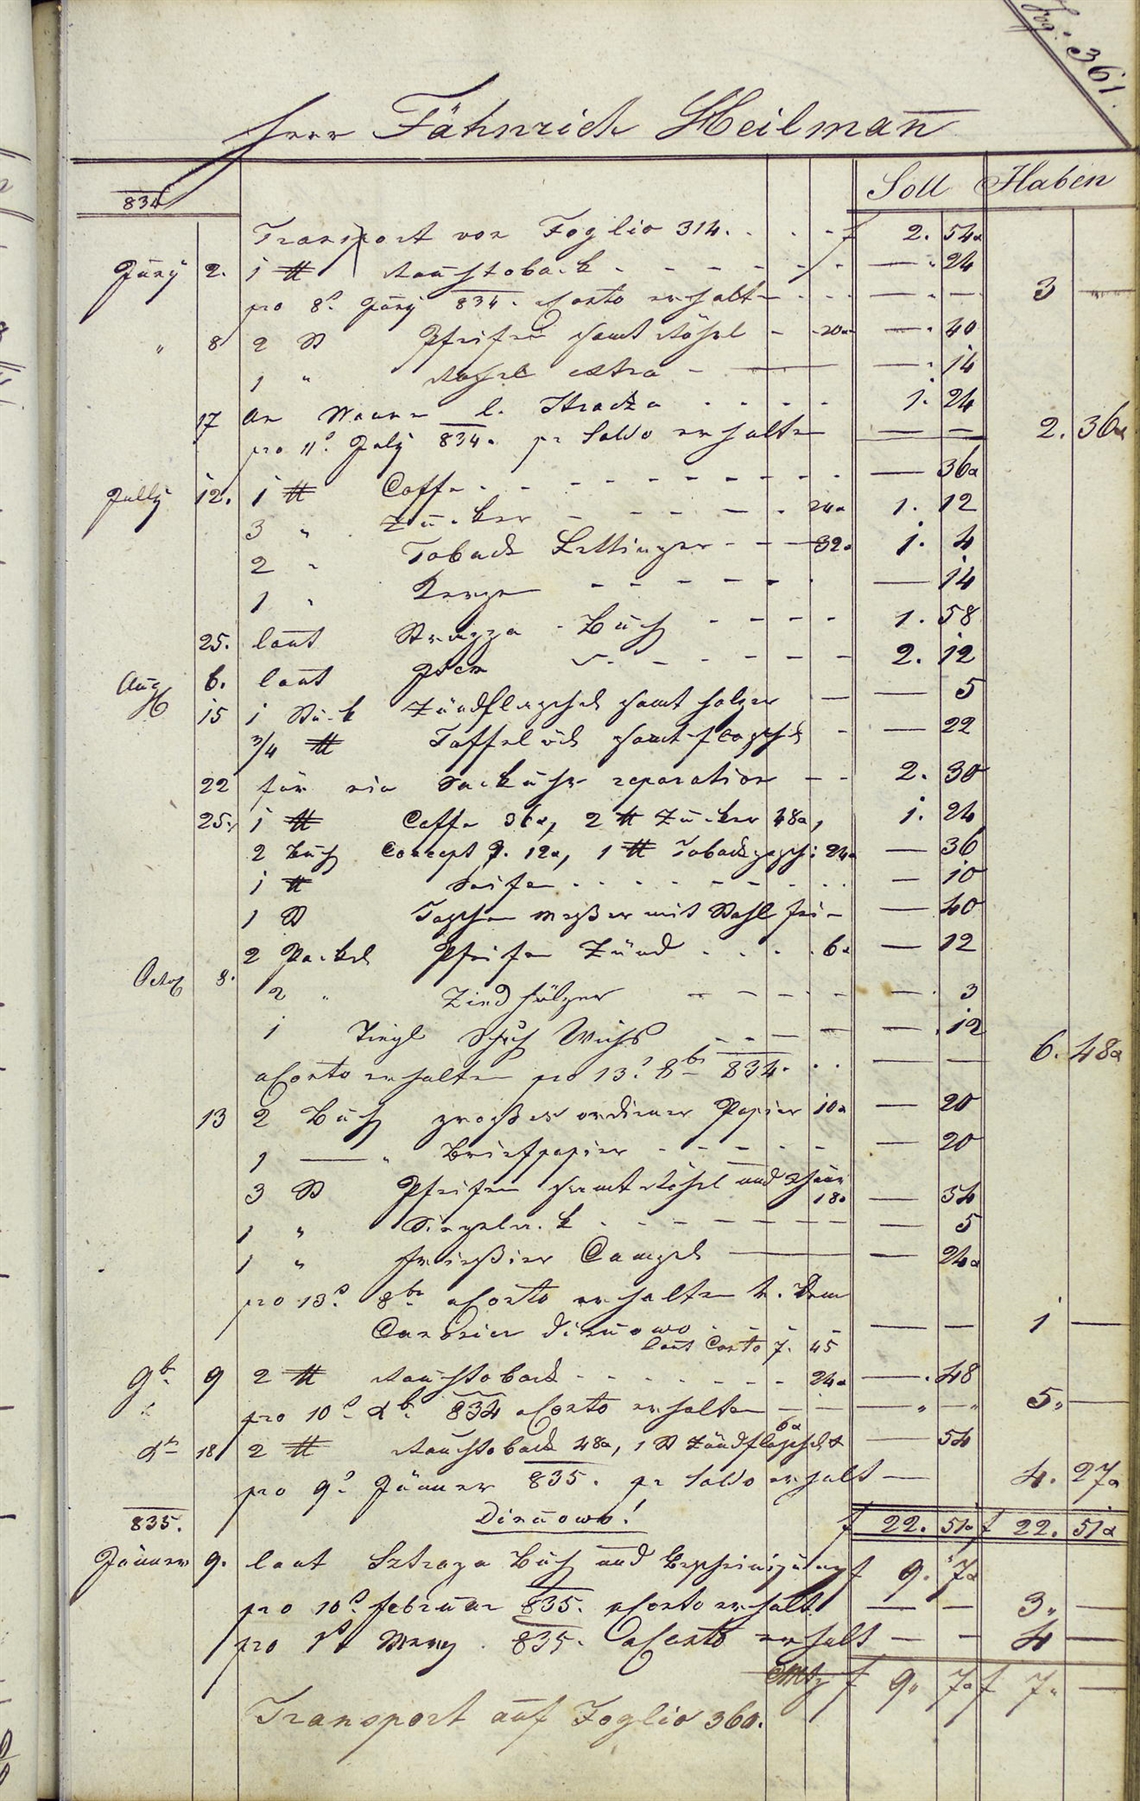 Fog: 361.
Herr Fähnrich Heilman̄
Soll Haben
834
Transport von Foglio 314. f 2. 54x
Juny 2. 1 ℔ Rauchtoback — 24
pro 8t Juny 834. a Conto erhalten — — 3 —
" 8 2 St Pfeifen samt Röhrl 20x — 40
1 " Röhrl extra — 14
17 an Waare l. Strazza 1. 24
pro 11t July 834. pr Saldo erhalten — — 2. 36x
Jully 12. 1 ℔ Caffe — 36x
3 " Zucker 24x 1. 12
2 " Toback Lettinger 32x 1. 4
1 " Kerzen — 14
25. laut Strazza Buch 1. 58
Aug 6. laut 2. 12
15 1 Stück Zündflaschel samt holzer — 5
3/4 ℔ Taffel öch samt flaschel — 22
22 für ein Sackuhr reparation 2. 30
25. 1 ℔ Caffe 36x, 2 ℔ Zucker 48x, 1. 24
2 Buch Concept P. 12x, 1 ℔ Toback 24x — 36
1 ℔ Seifen — 10
1 St Taschen messer mit Stahl fein — 40
2 Packel Pfeifen Zünd 6x — 12
Octob 8. 2 " Zind hölzer — 3
1 Tiegl Schuh Wichs — 12
a Conto erhalten pro 13t 8br 834. — — 6. 48x
13 2 Buch großes ordiner Papier 10x — 20
1 — " Briefpapier — 20
3 St Pfeifen samt Röhrl und Schnür 18x — 54
1 " Siegelack — 5
1 " frisier Campel — 24x
pro 13t 8br a Conto erhalten v. dem
Currier Dimowo — — 1 —
laut Conto 7. 45
9br 9 2 ℔ Rauchtoback 24x — 48
pro 10t Xbr 834 a Conto erhalten — — 5. —
Xbr 18 2 ℔ Rauchtoback 48x, 1 St Zündflaschel 6x — 54
pro 9t Jänner 835. pr Saldo erhalt — 4. 27x
835. Dimowo! f 22. 51x f 22. 51x
Jänner 9. laut Strazza Buch und Bescheinigung f 9. 7x
pro 10t februar 835. a Conto erhalt — — 3. —
pro 1t Merz 835. a Conto erhalt — — 4 —
f 9. 7x f 7. —
Transport auf Foglio 360.